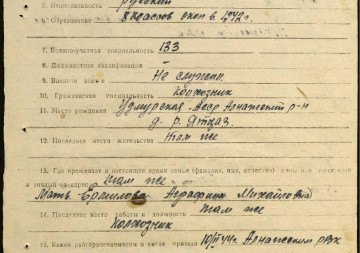 5. Национальность русский
6. Образование 8 классов окон в. 1942 г.
7. Военно-учетная специальность 133
8. Должностная квалификация
9. Военное звание Не служил
10. Гражданская специальность Колхозник
11. Место рождения Удмурская Асср Алнашский р-н
д.
12. Последнее место жительства Там же
13. Где проживает в настоящее время семья (фамилия, имя, отчество) жены или родителей
и точный их адрес Там же
Мать Ермилова Аграфина Михайловна
14. Последнее место работы и должность Там же
Колхозник
15. Каким райвоенкоматом и когда призван Алнашским РВК